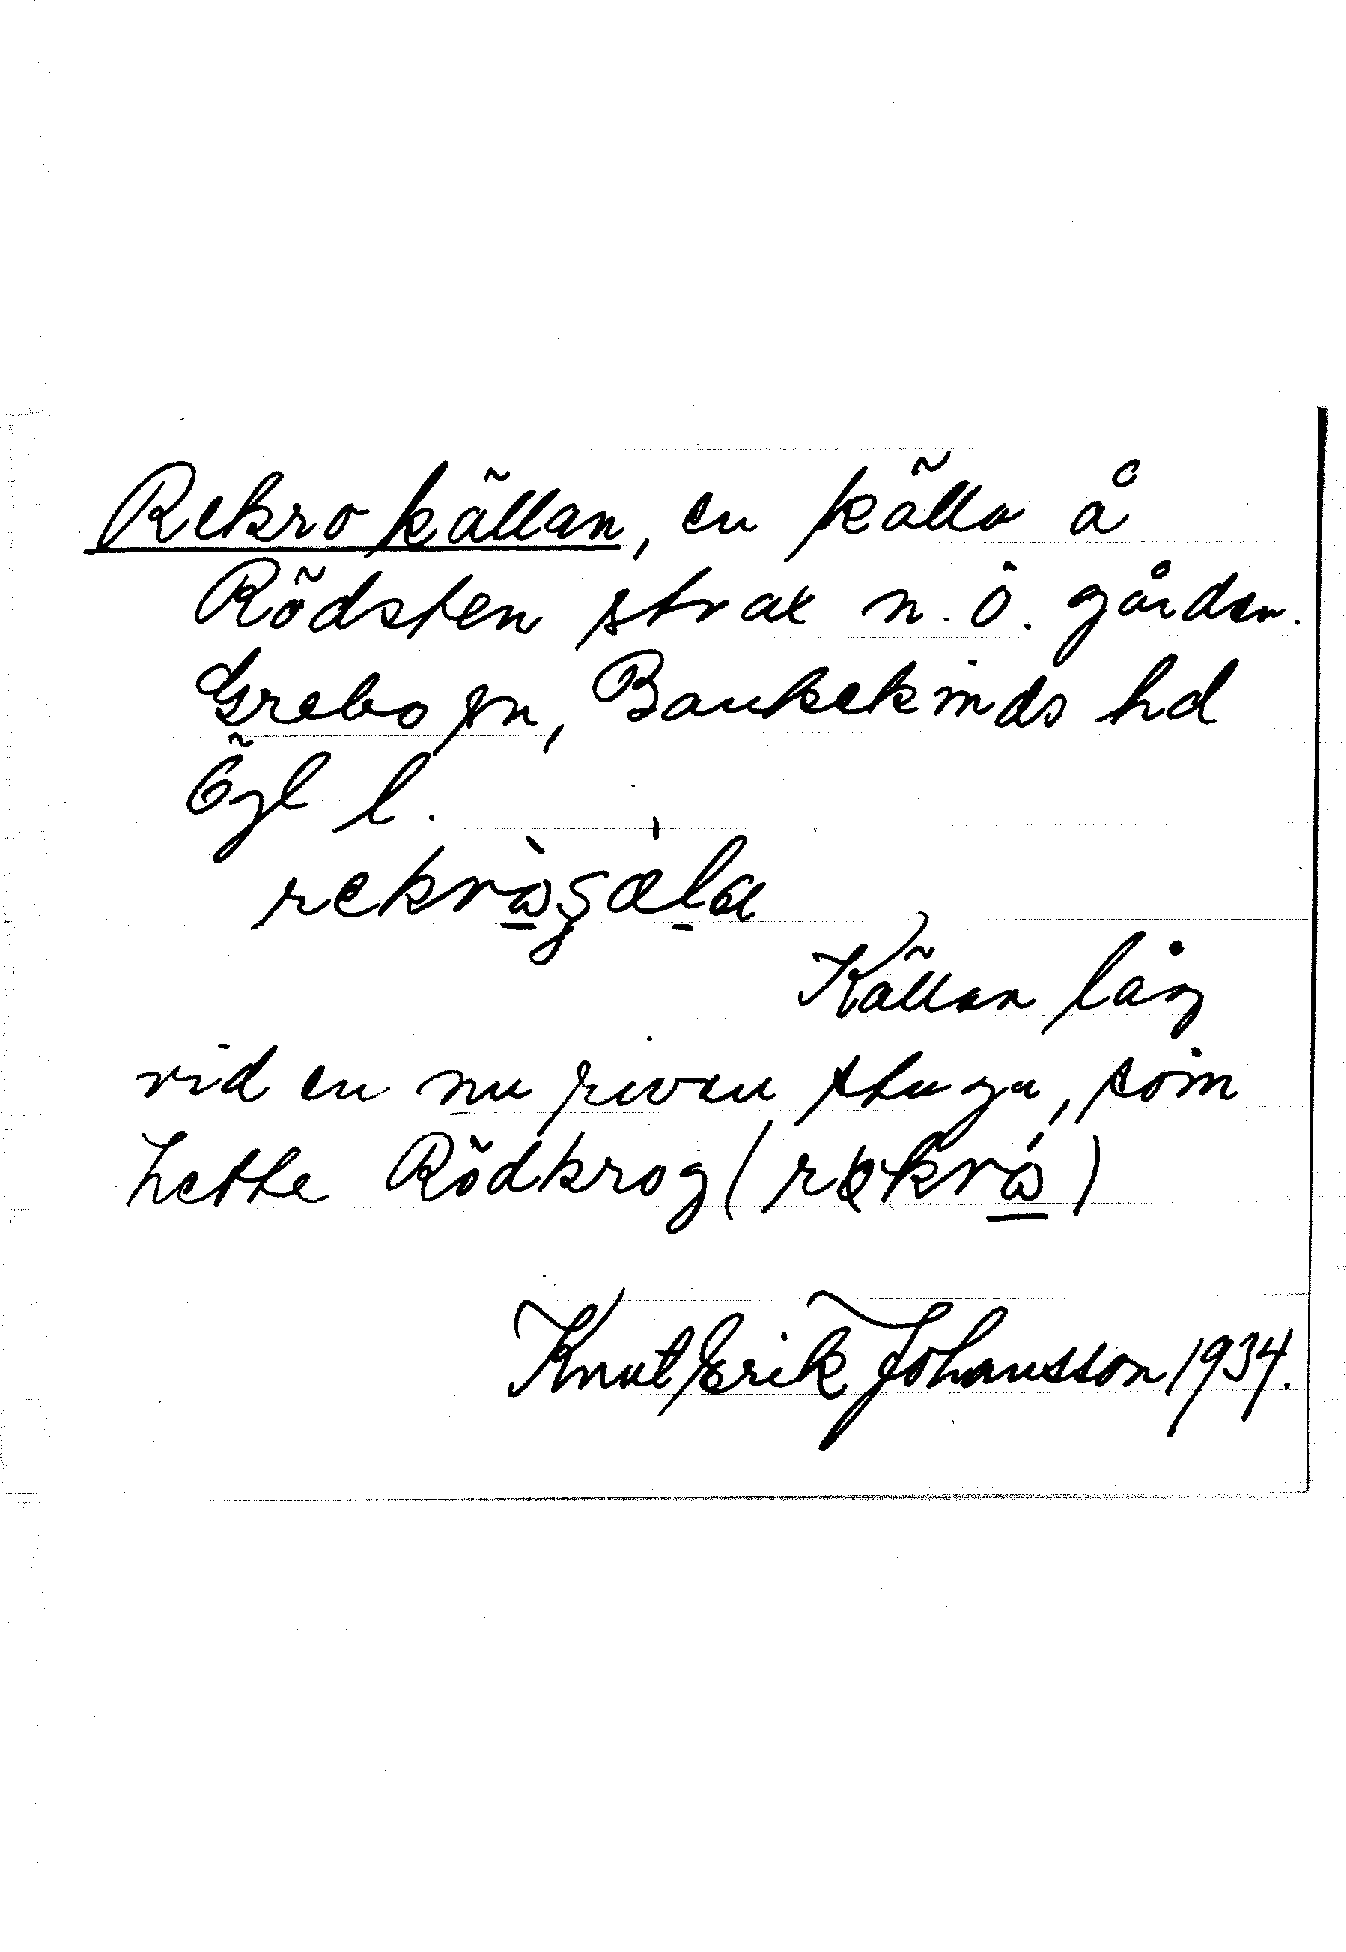 Rekrokällan, en källa å
Rödsten strax n. ö. gården.
Grebo sn, Bankekinds hd
Ögl l.
rekrò̲çæla
Källan låg
vid en nu riven stuga, som
hette Rödkrog (
Knut Erik Johansson 1934.